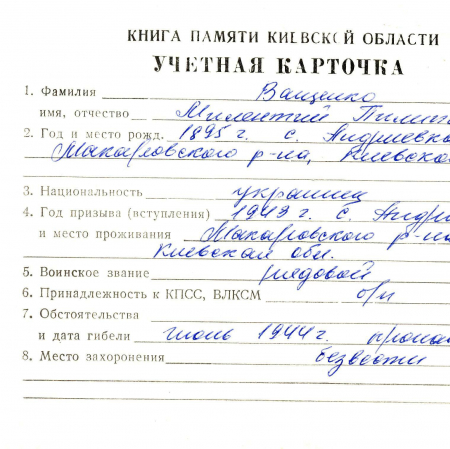 КНИГА ПАМЯТИ КИЕВСКОЙ ОБЛАСТИ
УЧЕТНАЯ КАРТОЧКА
1. Фамилия Ващенко
имя, отчество Милентий Пилип
2. Год и место рожд. 1895 г. с. Андриевка
Макаровского р-на, Киевской
3. Национальность украинец
4. Год призыва (вступления) 1943 г. с. Андри
и место проживания Макаровского р-на
Киевская обл.
5. Воинское звание рядовой
6. Принадлежность к КПСС, ВЛКСМ б/п
7. Обстоятельства
и дата гибели июль 1944 г. пропал
8. Место захоронения безвести